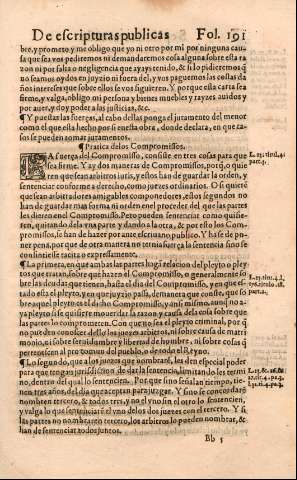 De escripturas publicas Fol. 191
bre, y prometo y me obligo que yo ni otro por mi por ninguna cau-
sa que sea vos pediremos ni demandaremos cosa alguna sobre esta ra
zon ni por falsa o negligencia que ayays tenido, & si lo pidieremos q̃
no seamos oydos en juyzio ni fuera del, y vos paguemos las costas da
ños intereses que sobre ellos se vos siguieren. Y por que esta carta sea
firme, y valga, obligo mi persona y bienes muebles y rayzes auidos y
por auer, y doy poder a las justicias, &c.
¶ Y puestas las fuerças, al cabo dellas ponga el juramento del menor
como el que esta hecho por si en esta obra, donde declara, en que ca-
sos se pueden tomar juramentos.
¶ Pratica de los Compromissos.
LA fuerça del Compromisso, consiste en tres cosas para que
sea firme. Y ay dos maneras de Compromissos, por q̃, o quie
ren que sean arbitros iuris, y estos han de guardar la orden, y
sentenciar conforme a derecho, como juezes ordinarios. O si quiere
que sean arbitradores amigables componedores, estos segundos no
han de guardar mas forma ni orden en el proceder del que las partes
les dieren en el Compromisso. Pero pueden sentenciar como quisie-
ren, quitando dela vna parte y dando la otra, & por esto los Com-
promissos, se han de hazer por ante escriuano publico. Y hase de po-
ner pena, por que de otra manera no ternia fuerça la sentencia sino se
consintiesse tacita o expressamente.
¶ La primera, en que ambas las partes hagã relacion del pleyto o pley
tos que tratan, sobre que hazen el Compromisso, o generalmente so
bre las deudas que tienen, hasta el dia del Compromisso, y en que es-
tado esta el pleyto, y en que juyzio pasa, de manera que conste, que so
bre aquel pleyto es el dicho Compromisso, y no sobre mismo, aunq̃ no aya
pleyto si se quisierẽ mouer digã la razon y causa dela cosa sobre que
las partes lo comprometieren. Con que no sea el pleyto criminal, por q̃
no puedẽ conoscer dello los juezes arbitros, ni sobre causa de matri
monio, ni sobre seruidumbre y libertad de hombre, ni sobre cosas q̃
pertenescen al pro comun del pueblo, o de todo el Reyno.
¶ Lo segundo, que a los juezes que nombran, les den especial poder
para que tengan jurisdicion de dar la sentencia, limitando les termi
no, dentro del qual lo sentencien. Por que sino señalan tiempo, tie-
nen tres años, del dia que aceptan para juzgar. Y sino se concordarẽ
nombren tercero, & todos tres, y no el vno sin el otro lo sentencien,
y valga lo que sentenciar el vno delos dos juezes con el tercero. Y si
las partes no nombraren tercero, los arbitros lo pueden nombrar, &
han de sentenciar todos juntos.
Bb 5